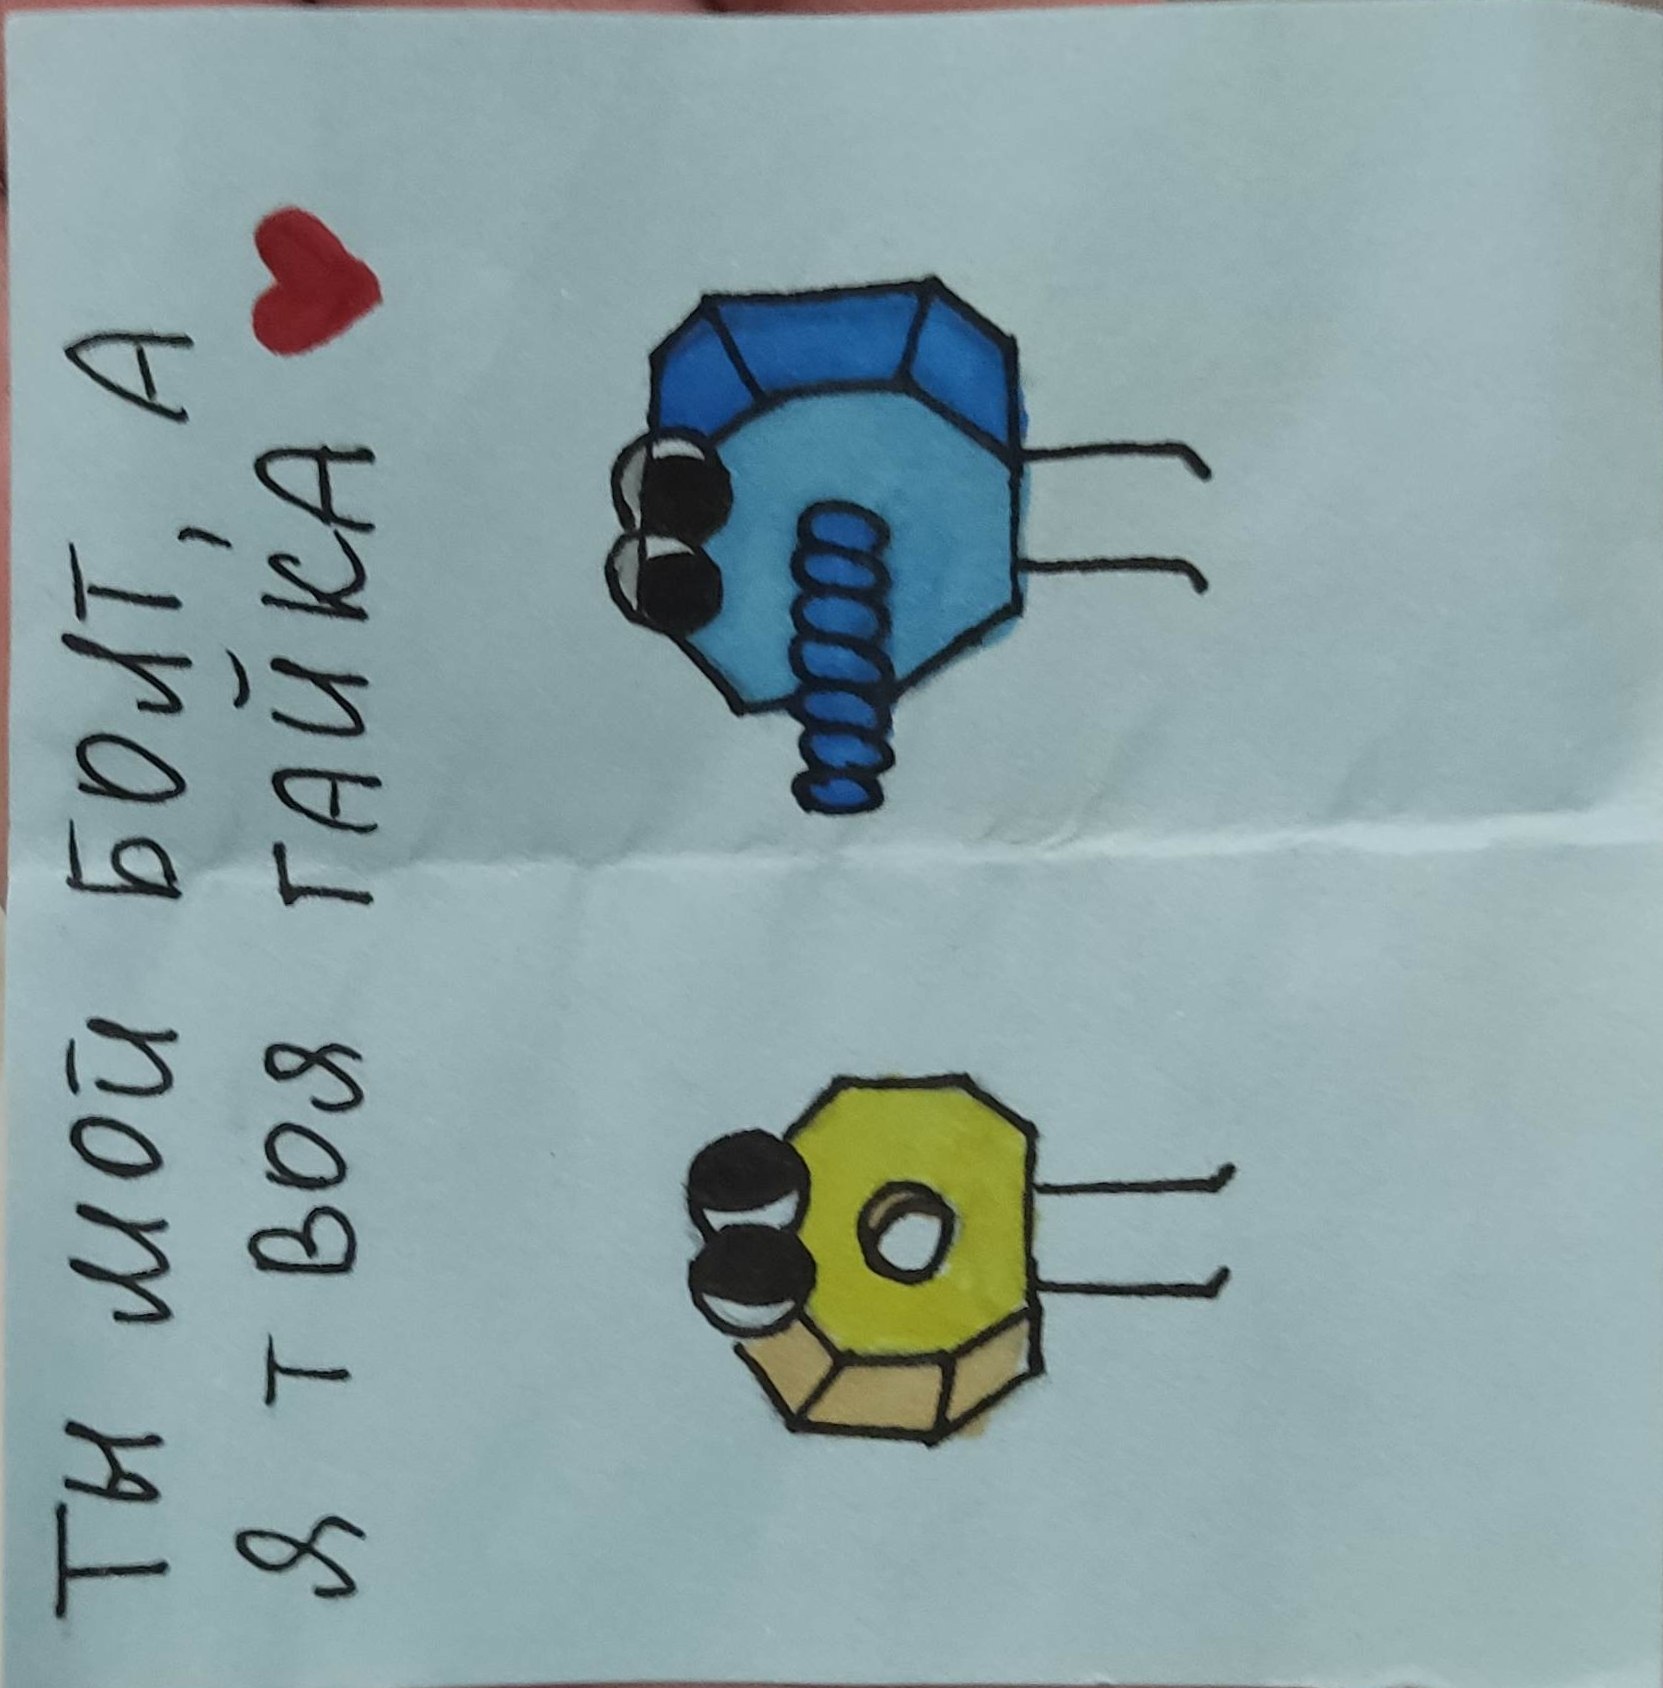 ТЫ МОЙ БОЛТ, А
Я ТВОЯ ГАЙКА